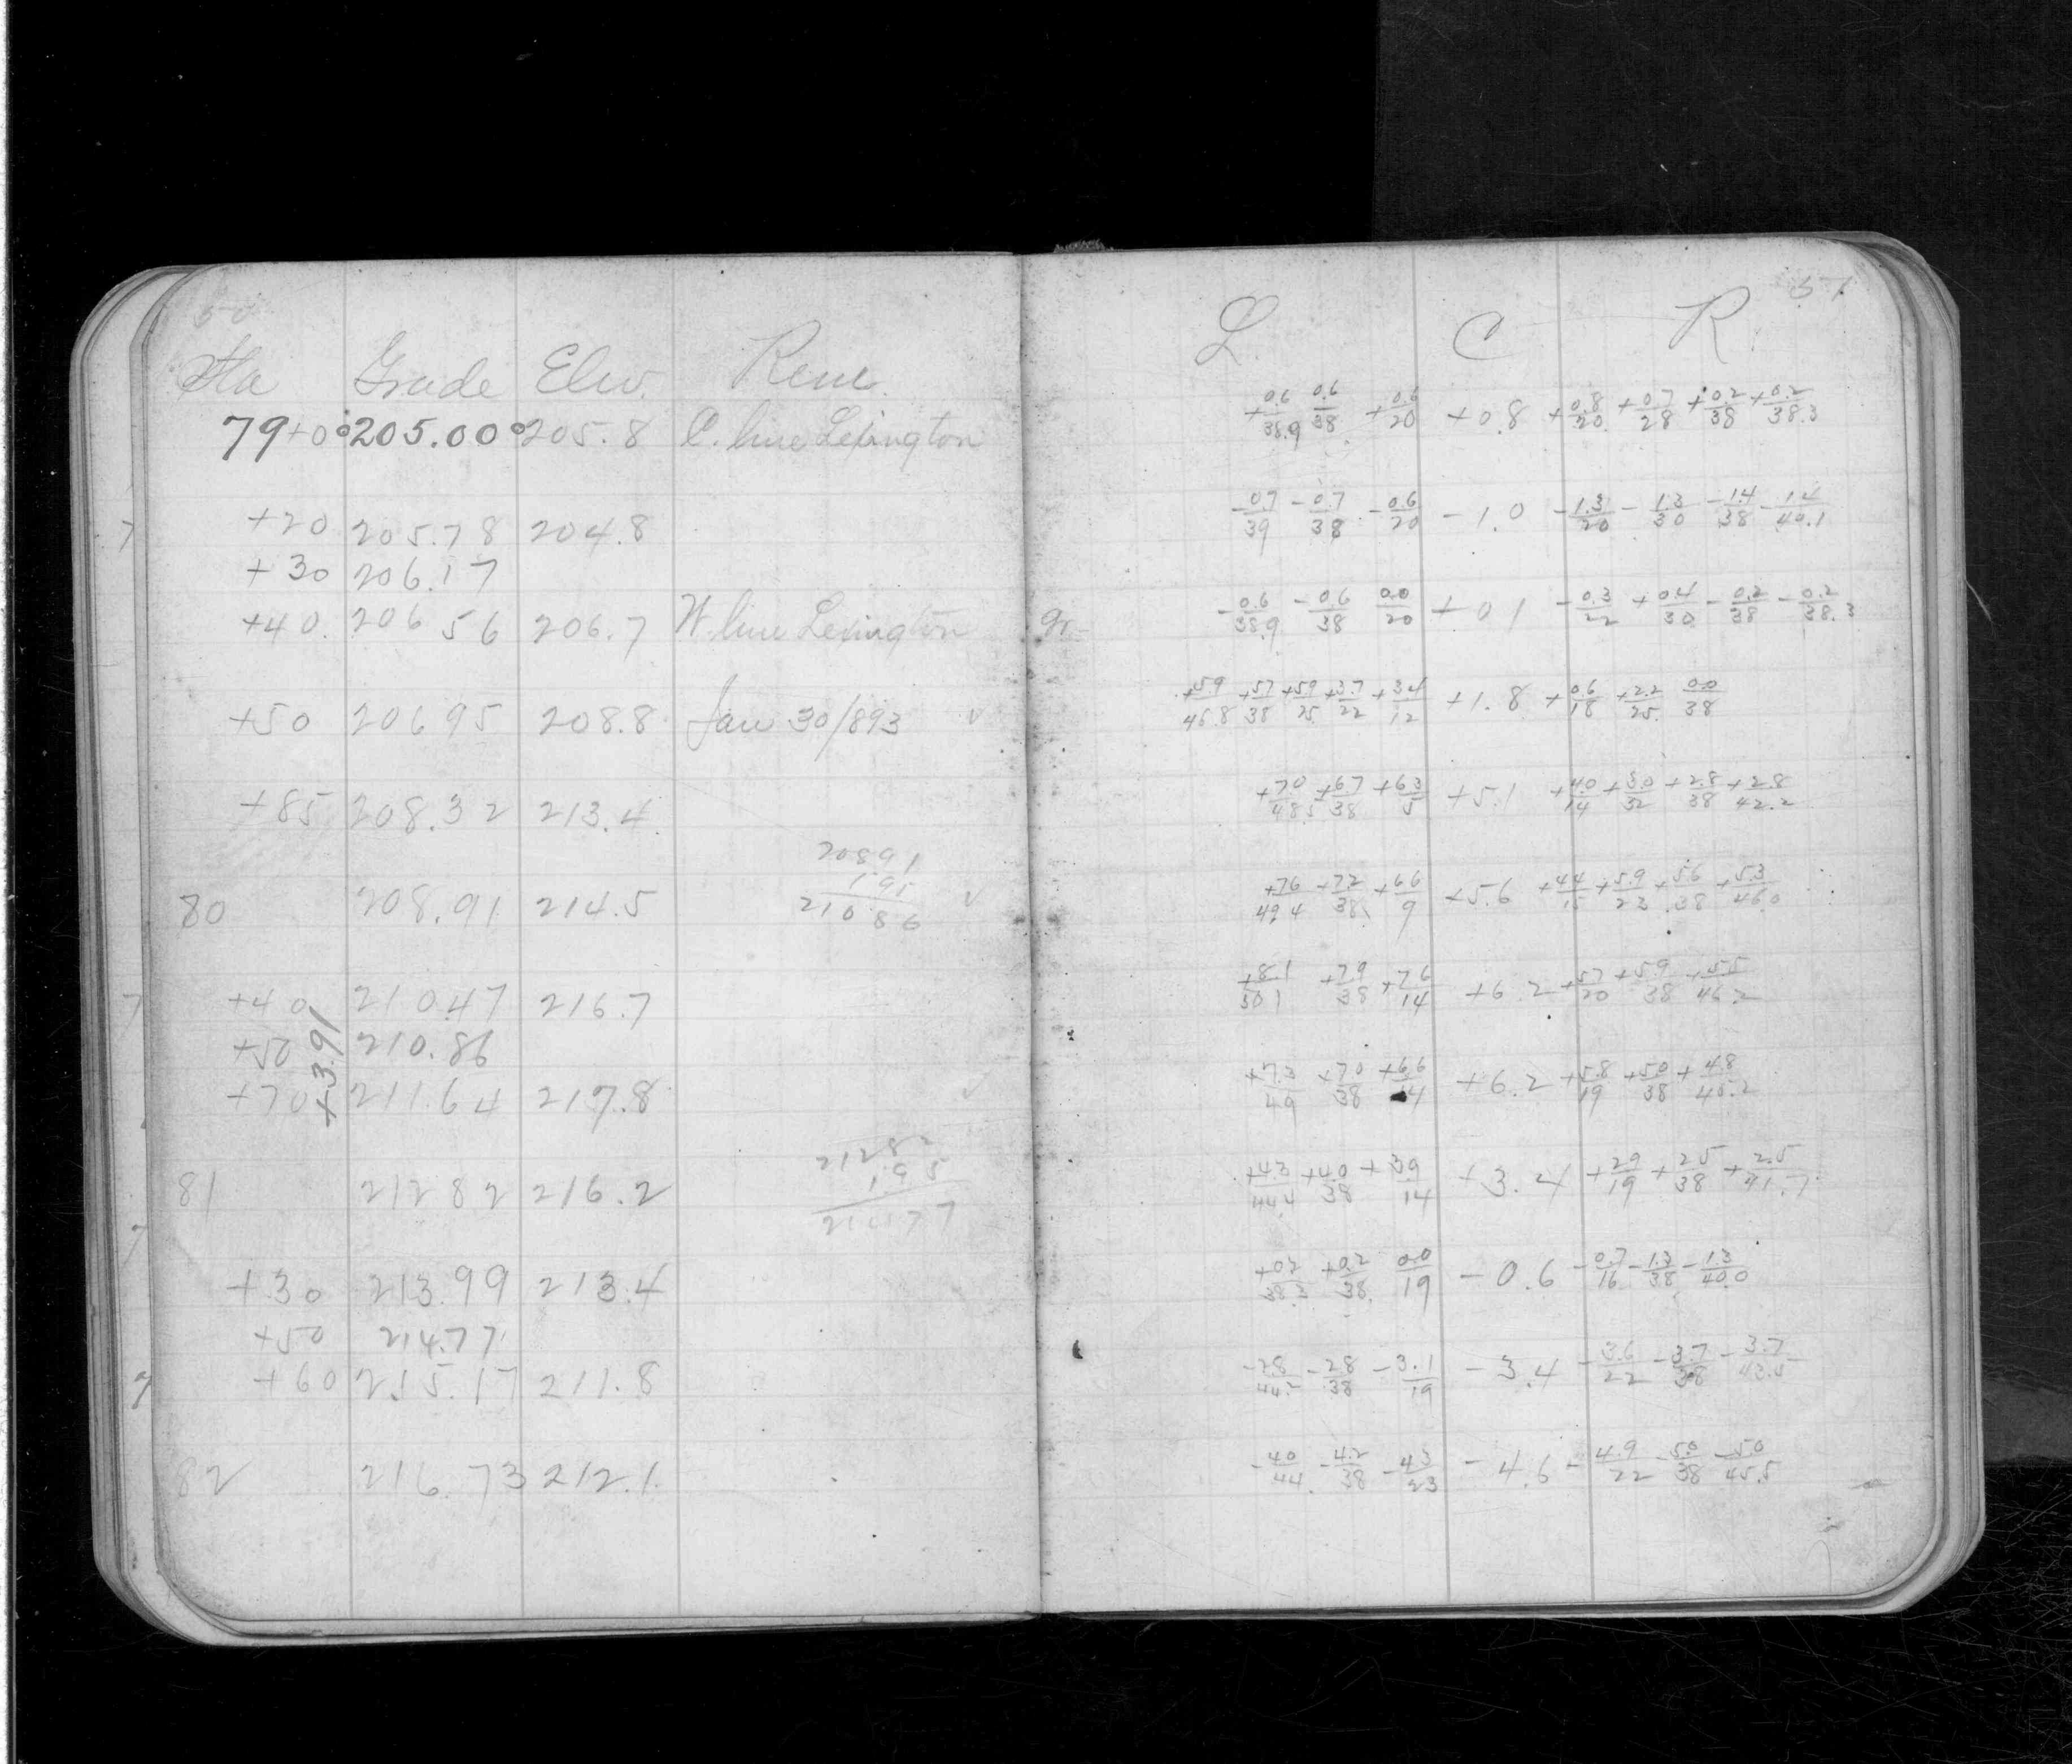 50
Sta Grade Elev. Rem.
79+00 205.00 205.8 C. line Lexington
+20 205.78 204.8
+30 206.17
+40. 206 56 206.7 W. line Lexington
+50 206 95 208.8 Jan 30/893 ✓
+85 208.32 213.4
208 91
1.95
210.86
80 208.91 214.5 ✓
+40 210.47 216.7
+50 210.86
+3.91
+70 211.64 217.8 ✓
212 82
1.95
214 77
81 212 82 216.2
+30 213.99 213.4
+50 214.77
+60 215.17 211.8
82 216.73 212.1
51
L. C R.
+0.6/38.9 0.6/38 +0.6/20 +0.8 +0.8/20 +0.7/28 +0.2/38 +0.2/38.3
-0.7/39 -0.7/38 -0.6/20 -1.0 -1.3/20 -1.3/30 -1.4/38 -1.4/40.1
Gr -0.6/38.9 -0.6/38 0.0/20 +0.1 -0.3/22 +0.4/30 -0.2/38 -0.2/38.3
+5.9/46.8 +5.7/38 +5.9/25 +3.7/22 +3.4/12 +1.8 +0.6/18 +2.2/25 0.0/38
+7.0/48.5 +6.7/38 +6.3/5 +5.1 +4.0/14 +3.0/32 +2.8/38 +2.8/42.2
+7.6/49.4 +7.2/38 +6.6/9 +5.6 +4.4/15 +5.9/23 +5.6/38 +5.3/46.0
+8.1/50.1 +7.9/38 +7.6/14 +6.2 +5.7/20 +5.9/38 +5.5/46.2
+7.3/49 +7.0/38 +6.6/14 +6.2 +5.8/19 +5.0/38 +4.8/45.2
+4.3/44.4 +4.0/38 +3.9/14 +3.4 +2.9/19 +2.5/38 +2.5/41.7
+0.2/38.3 +0.2/38. 0.0/19 -0.6 -0.7/16 -1.3/38 -1.3/40.0
-2.8/44.2 -2.8/38 -3.1/19 -3.4 -3.6/22 -3.7/38 -3.7/43.5
-4.0/44. -4.2/38 -4.3/23 -4.6 -4.9/22 -5.0/38 -5.0/45.5